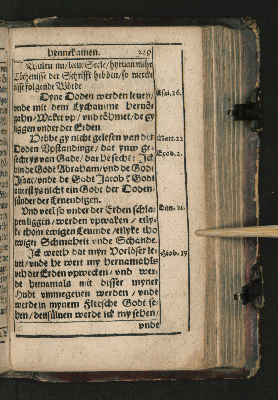 hennekamen. 219
Wultu nu / leve Seele / hyrvan mehr
Tüchenisse der Schrifft hebben / so mercke
disse folgende Wörde
Dyne Doden werden leven /
unde mit dem Lychamme hervör
gahn / Waket up / und röhmet / de gy
liggen under der Erden. Esai. 26.
Hebbe gy nicht gelesen van der Matt. 22
Doden Upstandinge / dat yuw ge-
schryven van Gade / dar he secht: Ick Exob. 2.
bin de Godt Abraham / und de Godt
Isaac / und de Godt Jacob? Godt
averst ys nicht ein Godt der Doden /
sünder der Levendigen.
Und veel so under der Erden schla- Dan. 12.
pen liggen / werden upwaken / etly-
ke thom ewigen Levende / etlyke tho
ewiger Schmaheit unde Schande.
Ick weeth dat myn Vorlöser le- Hiob. 19
vet / unde he wert my hernamahls
uth der Erden upwecken / und wer-
de hernamals mit disser myner
Hudt ummegeven werden / unde
werde in mynem Fleische Godt se-
hen / densülven werde ick my sehen /
unde